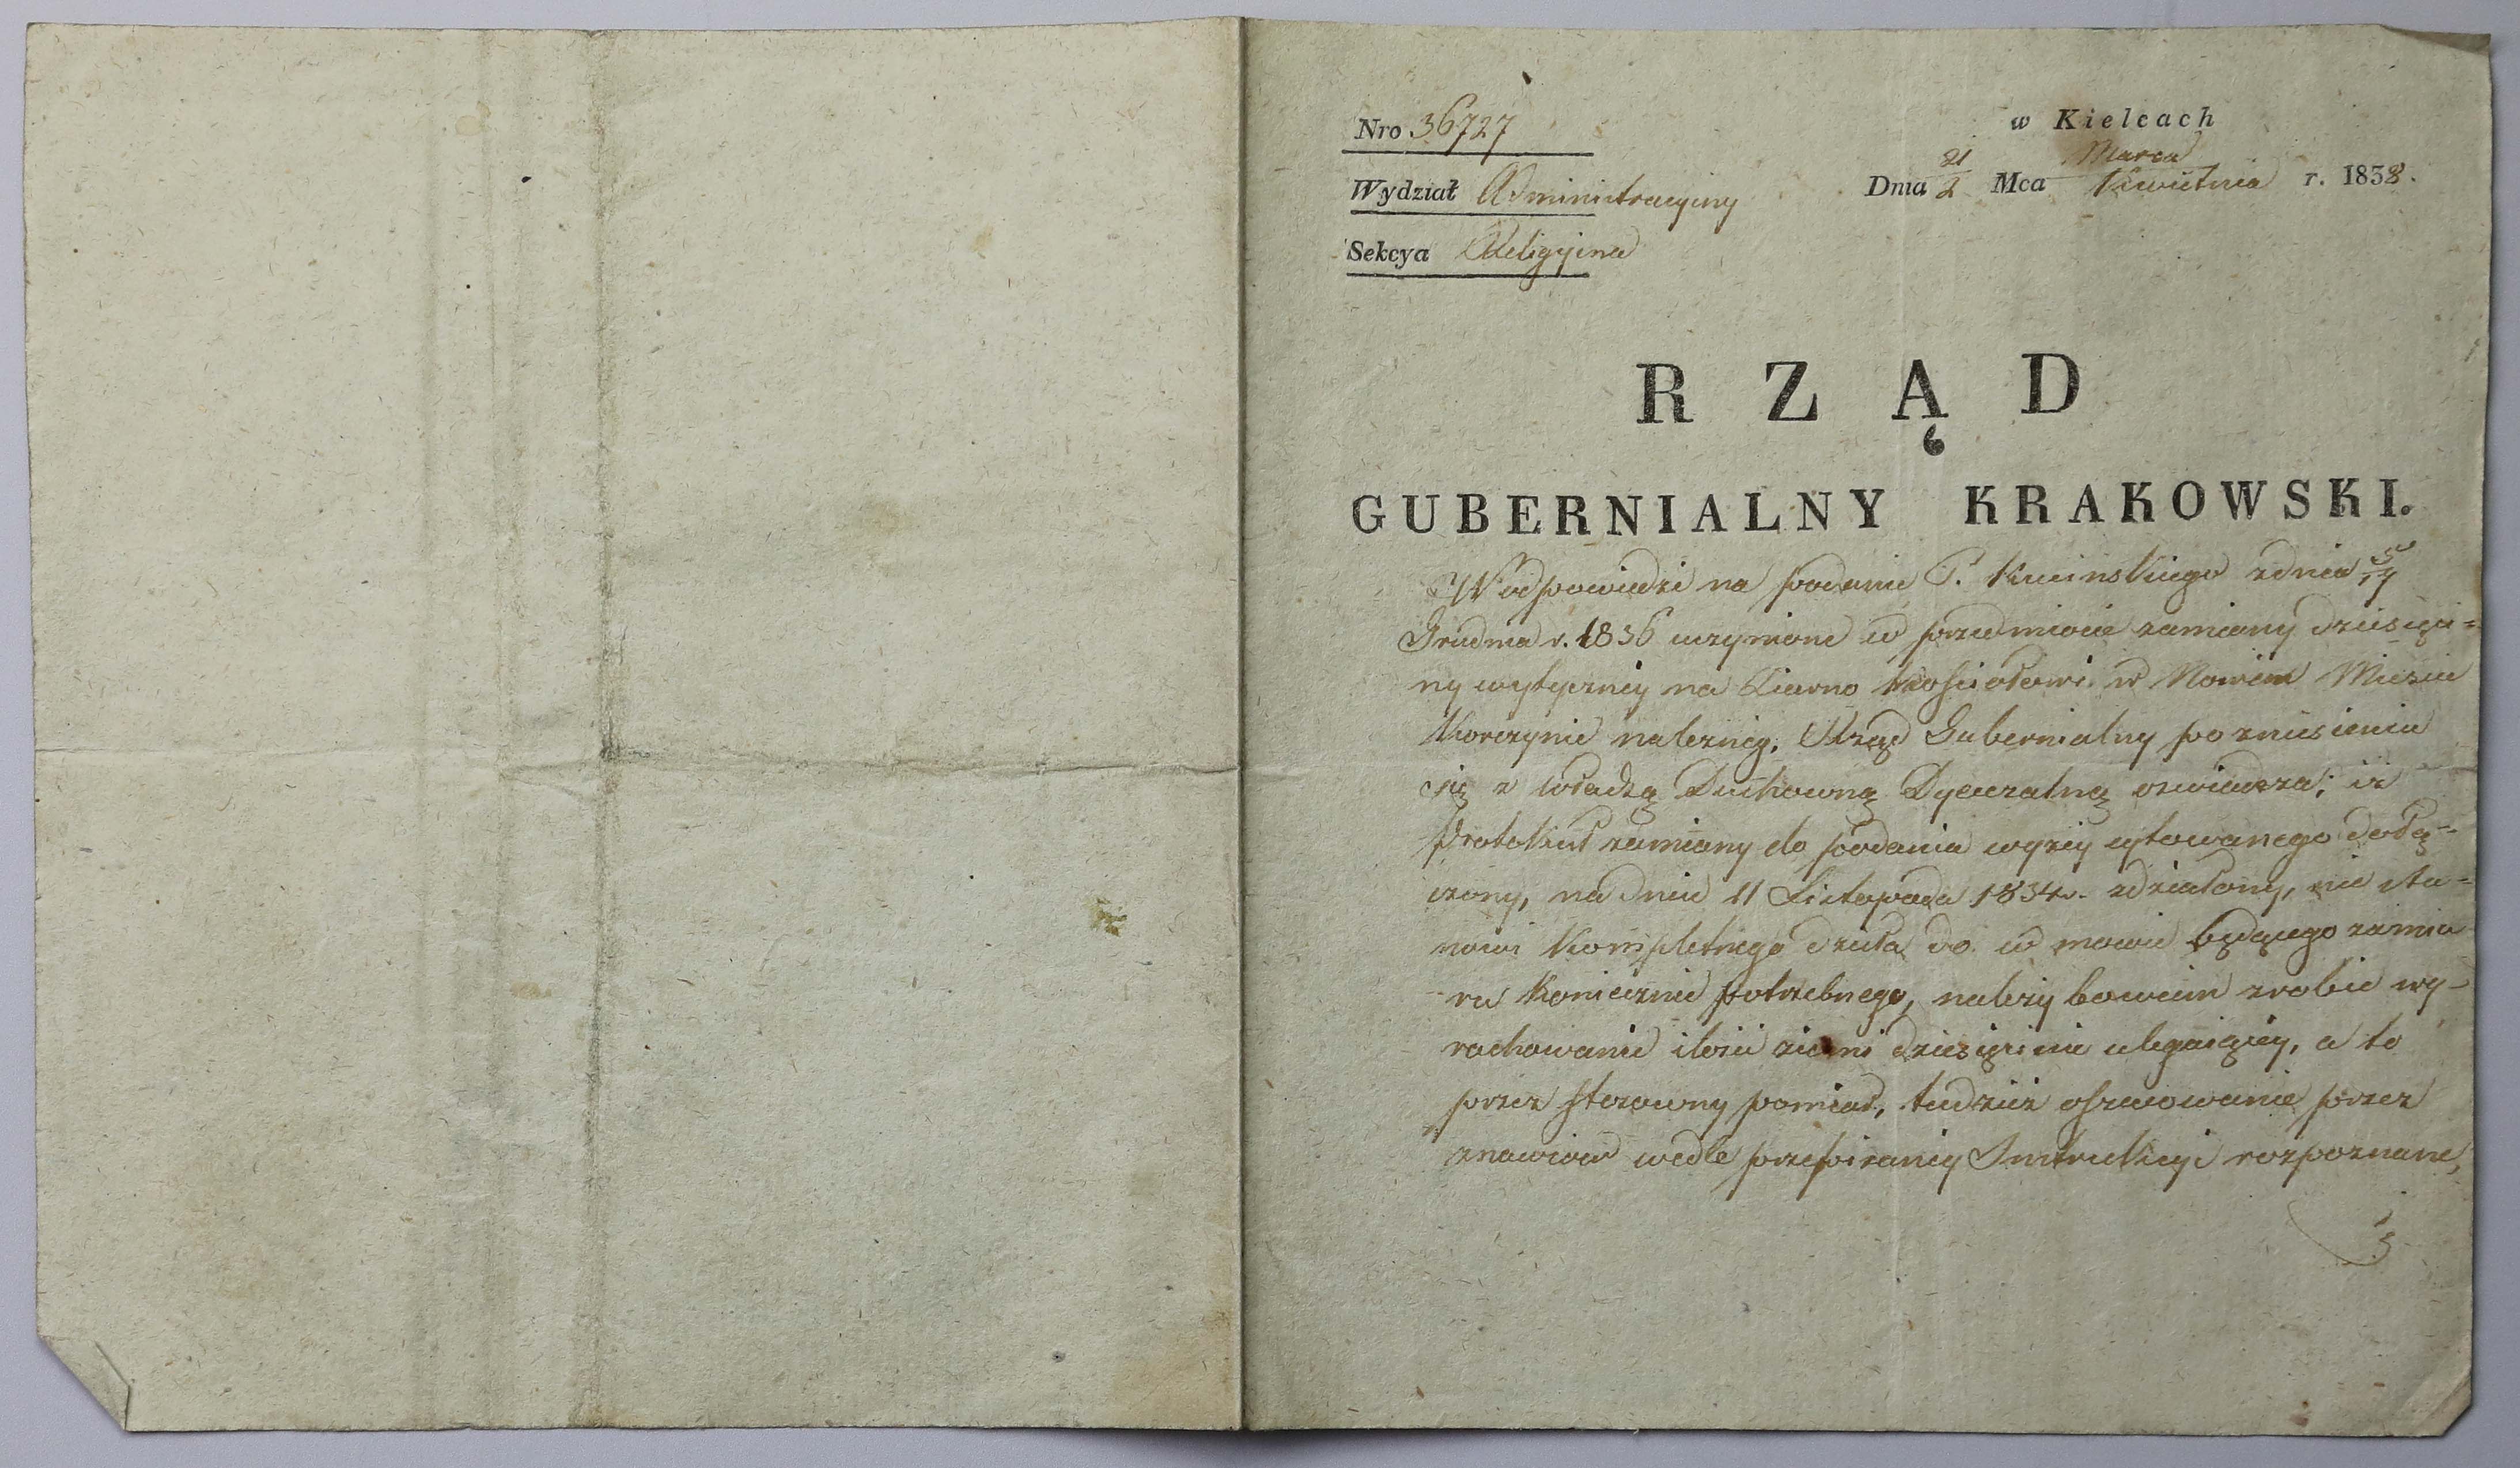 Nro 36727
w Kielcach
Wydział Administracyiny
Dnia 21/2 Mca Marca/Kwietnia r. 1838.
Sekcya Religijna
RZĄD
GUBERNIALNY KRAKOWSKI.
W odpowiedzi na podanie P. Kucinskiego z dnia 5/17
Grudnia r. 1836 uczynione w przedmiocie zamiany dziesięci=
ny wytyczney na Ziarno Kościołowi w Nowem Mieście
Korczynie należney, Rząd Gubernialny po zniesieniu
się z Władzą Duchowną Dyecezalną oswiadcza; iż
Protokuł zamiany do podania wyżey cytowanego dołą-
czony, na dniu 11 Listopada 1834 r. zdziałany, nie sta=
nowi kompletnego dzieła do w mowie będącego zamia
ru koniecznie potrzebnego, należy bowiem zrobić wy-
rachowanie ilości ziemi dziesięcinie ulegaiącey, a to
przez stosowny pomiar, tudzież oszacowanie przez
znawców wedle przepisaney Instrukcyi rozpoznane,